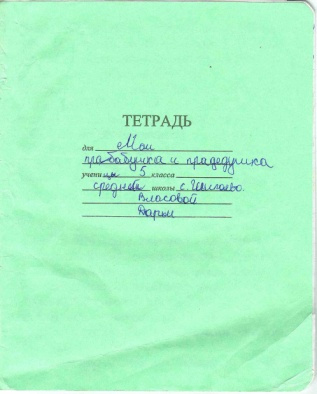 ТЕТРАДЬ
для Мои
прабабушка и прадедушка
учени цы 5 класса
средней школы с.
Власовой
Дарьи